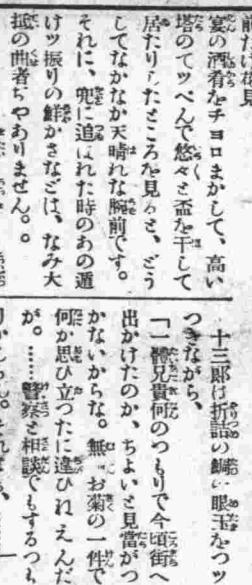 宴の酒肴をチョロまかして、高い
塔のてッぺんで悠々と盃を干して
居たりしたところを見ると、どう
してなかなか天晴れな腕前です。
それに、兜に追はれた時のあの遁
けッ振りの鮮かさなどは、なみ大
抵の曲者ぢやありません。
十三郎は折詰の鯛の眼玉をつッ
つきながら、
「一體兄貴何のつもりで今頃街へ
出かけたのか、ちよいと見當がつ
かないからな。無論お菊の一件で
何か思ひ立つたに違ひねえんだ
が。……警察と相談でもするつも